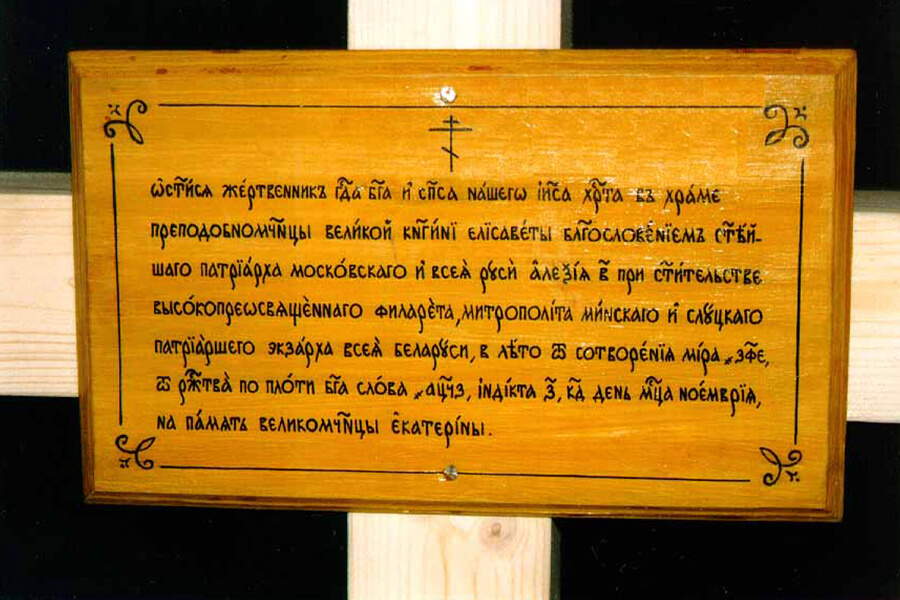 ѡ҆ст҃и́сѧ же́ртвенникъ гд҃а бг҃а и҆ сп҃са на́шегѡ і҆и҃са хр҃та въ хра́ме
преподобномч҃ницы вели́кой кн҃ги́ни елїсаве́ты бл҃гослове́нїемъ ст҃ѣ́й-
шаго патрїа́рха моско́вскаго и҆ всеѧ̀ руси́ а҆леѯі́ѧ в҃ при ст҃и́тельстве
высо́копреѡсвѧще́ннаго филаре́та, митропо́лїта ми́нскаго и҆ слу́цкаго
патрїа́ршего экза́рха всеѧ̀ белару́си, в лѣ́то ѿ сотворе́нїѧ мі́ра ҂зф҃є,
ѿ рж҃тва̀ по пло́ти бг҃а сло́ва ҂ац҃ч҃з, і҆нді́кта з҃, кд҃ день мц҃а ное́мврїѧ,
на па́мѧть великомч҃ницы є҆катери́ны.